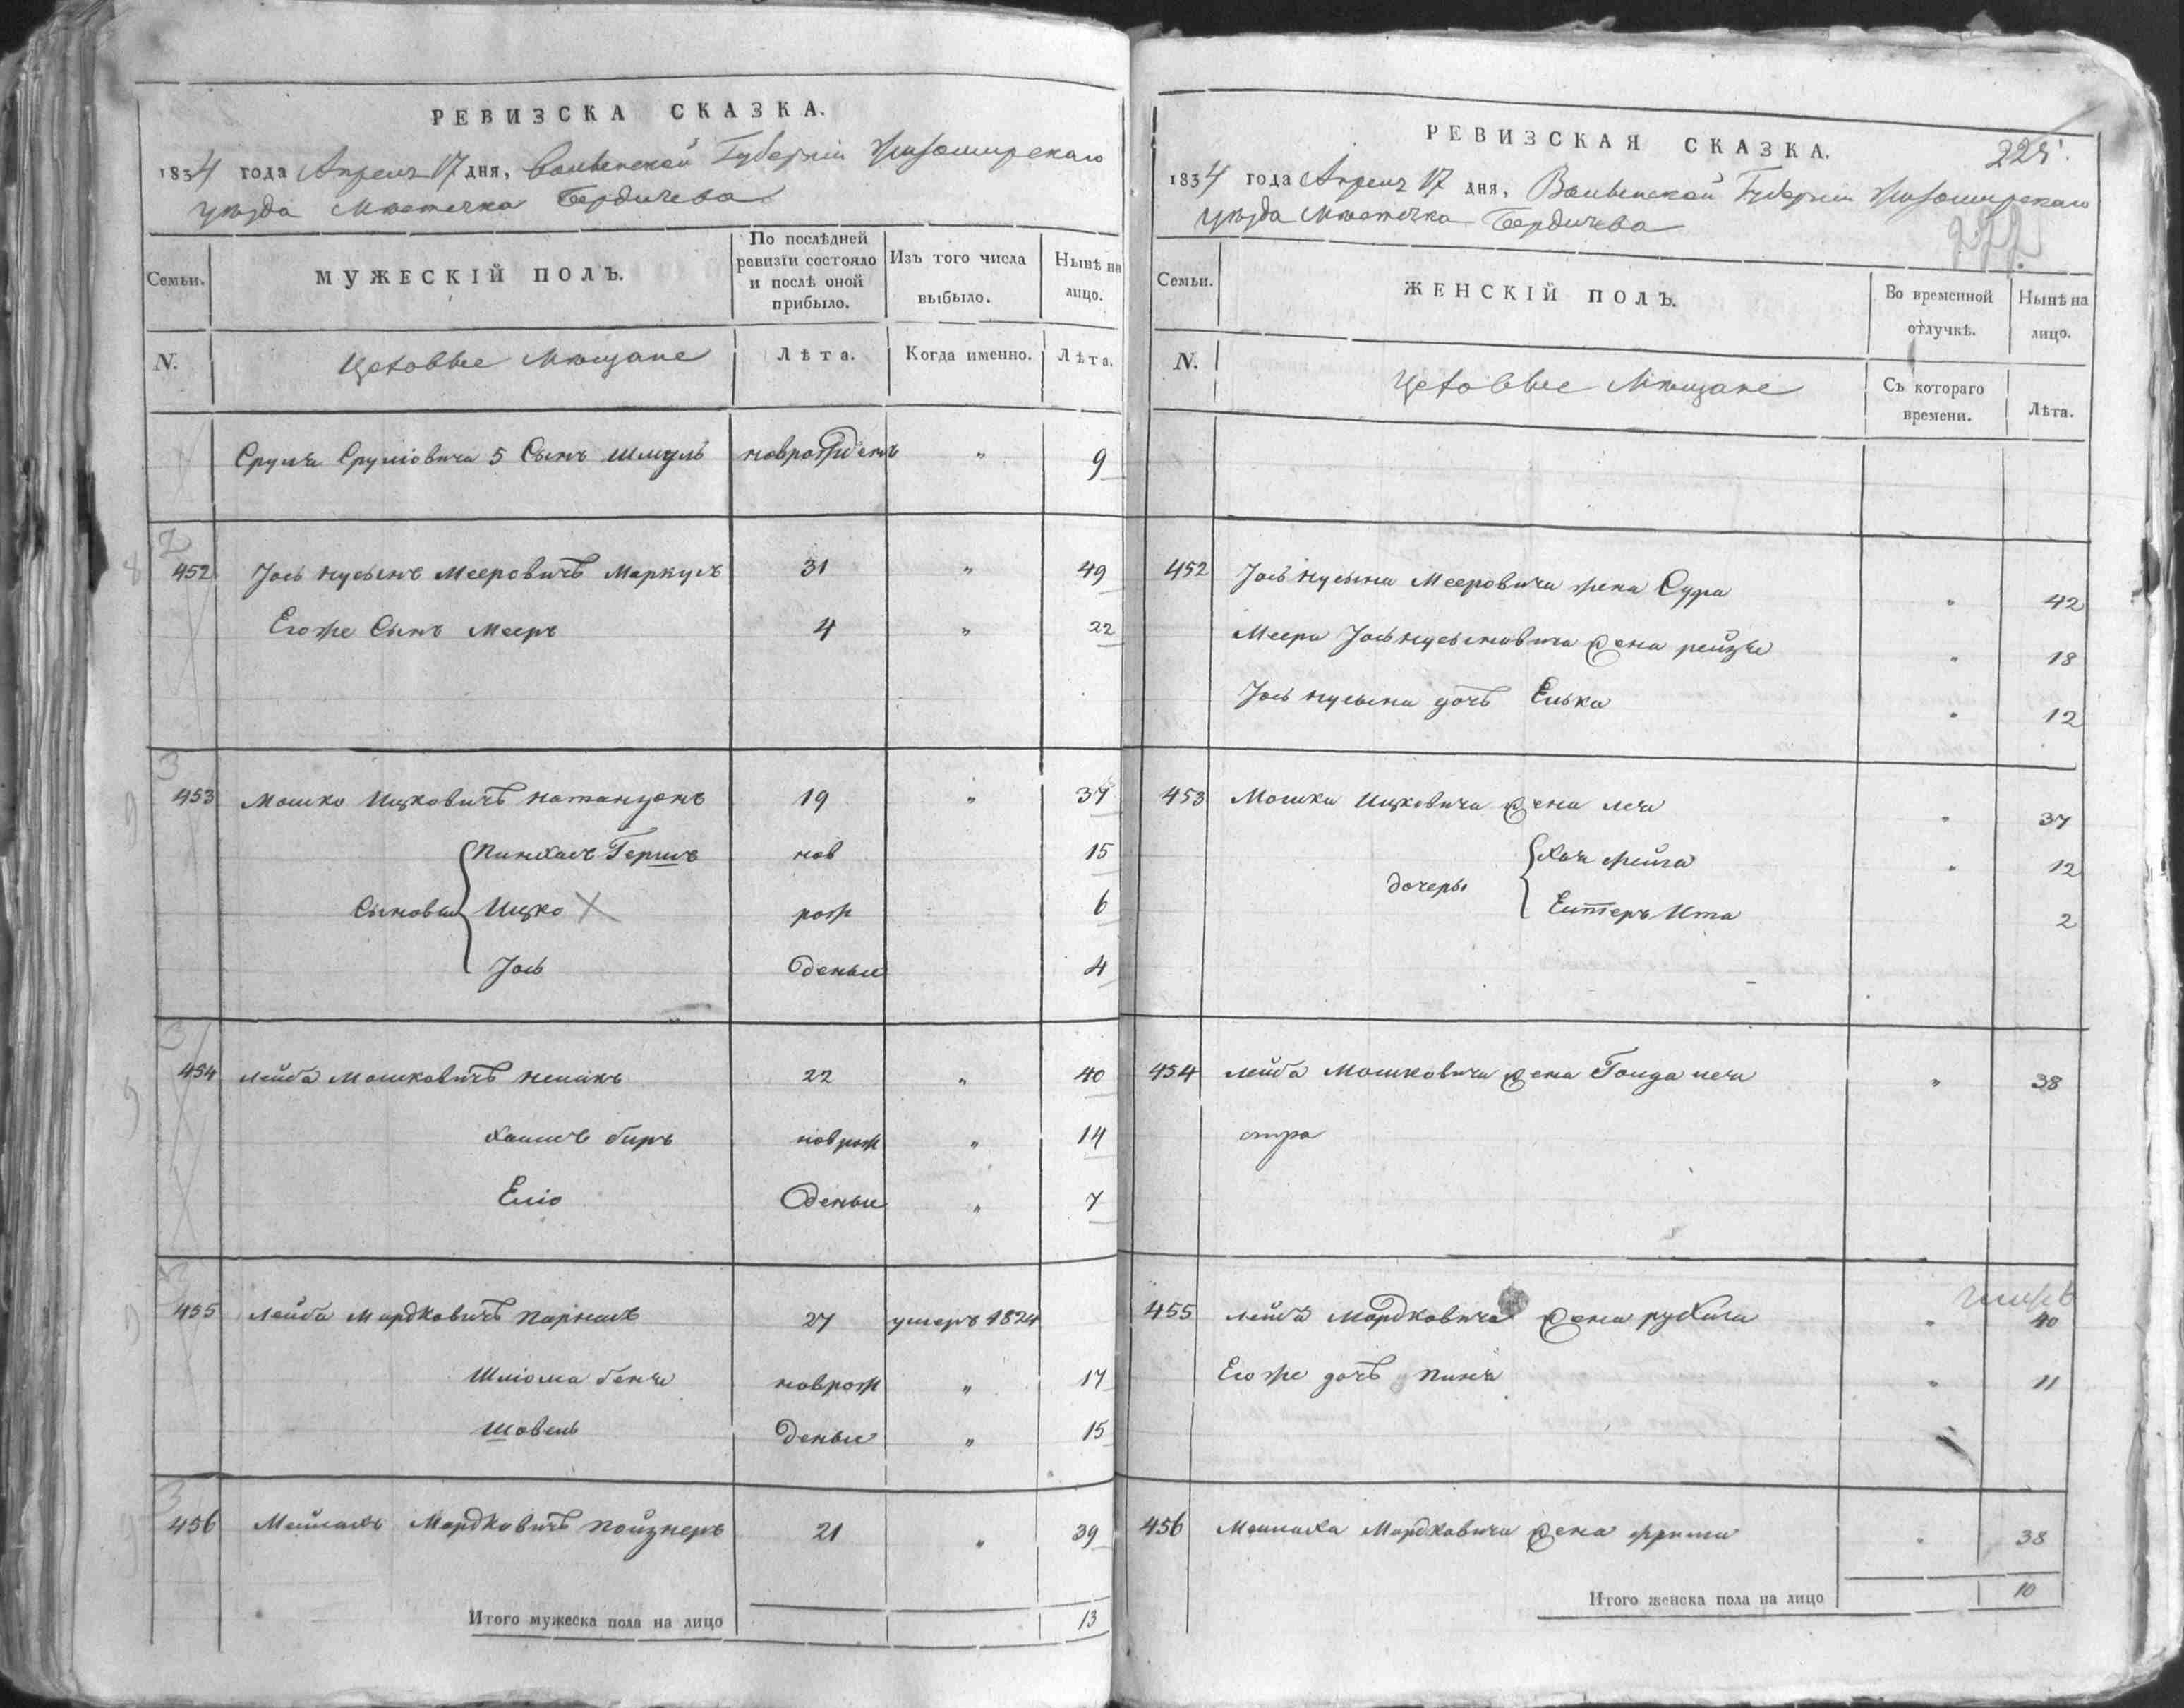 РЕВИЗСКА СКАЗКА.
1834 года Апреля 17 дня, Волынской Губерніи Житомирскаго
уѣзда Мѣстечка Бердичева
Семьи.
МУЖЕСКІЙ ПОЛЪ.
По послѣдней ревизіи состояло и послѣ оной прибыло.
Изъ того числа выбыло.
Нынѣ на лицо.
N.
Цеховые Мѣщане
Лѣта.
Когда именно.
Лѣта.
Сруля Сруліовича 5 Сынъ Шмуль новрожденъ " 9
452 Іось нусынъ Мееровичъ Маркусъ 31 " 49
Егоже Сынъ Мееръ 4 " 22
453 Мошко Ицковичъ Натанзонъ 19 " 37
Пинхасъ Гершъ нов 15
Сыновья Ицко рож 6
Іось деные 4
454 Лейба Мошковичъ 22 " 40
беръ новрож " 14
Еліо деные " 7
455 Лейба Мордковичъ Парнасъ 27 умеръ 1824
Шліома бенче новрож " 17
Шовель деные " 15
456 Мейлахъ Мордковичъ Пойзнеръ 21 " 39
Итого мужеска пола на лицо 13
РЕВИЗСКАЯ СКАЗКА.
225.
1834 года Апреля 17 дня, Волынской Губерніи Житомирскаго
уѣзда Мѣстечка Бердичева
Семьи.
ЖЕНСКІЙ ПОЛЪ.
Во временной отлучкѣ.
Нынѣ на лицо.
N.
Цеховые Мѣщане
Съ котораго времени.
Лѣта.
452 Іось нусына Мееровича жена Сура " 42
Меера Іосьнусыновича жена рейзя " 18
Іось нусына дочь Елька " 12
453 Мошки Ицковича жена лея " 37
Хая фейга " 12
дочеры
Ента 2
454 Лейба Мошковича жена Голда лея " 38
455 Лейба Мордковича жена рухля " 40
Егоже дочь Пиня " 11
456 Мейлаха Мордковича жена " 38
Итого женска пола на лицо 10